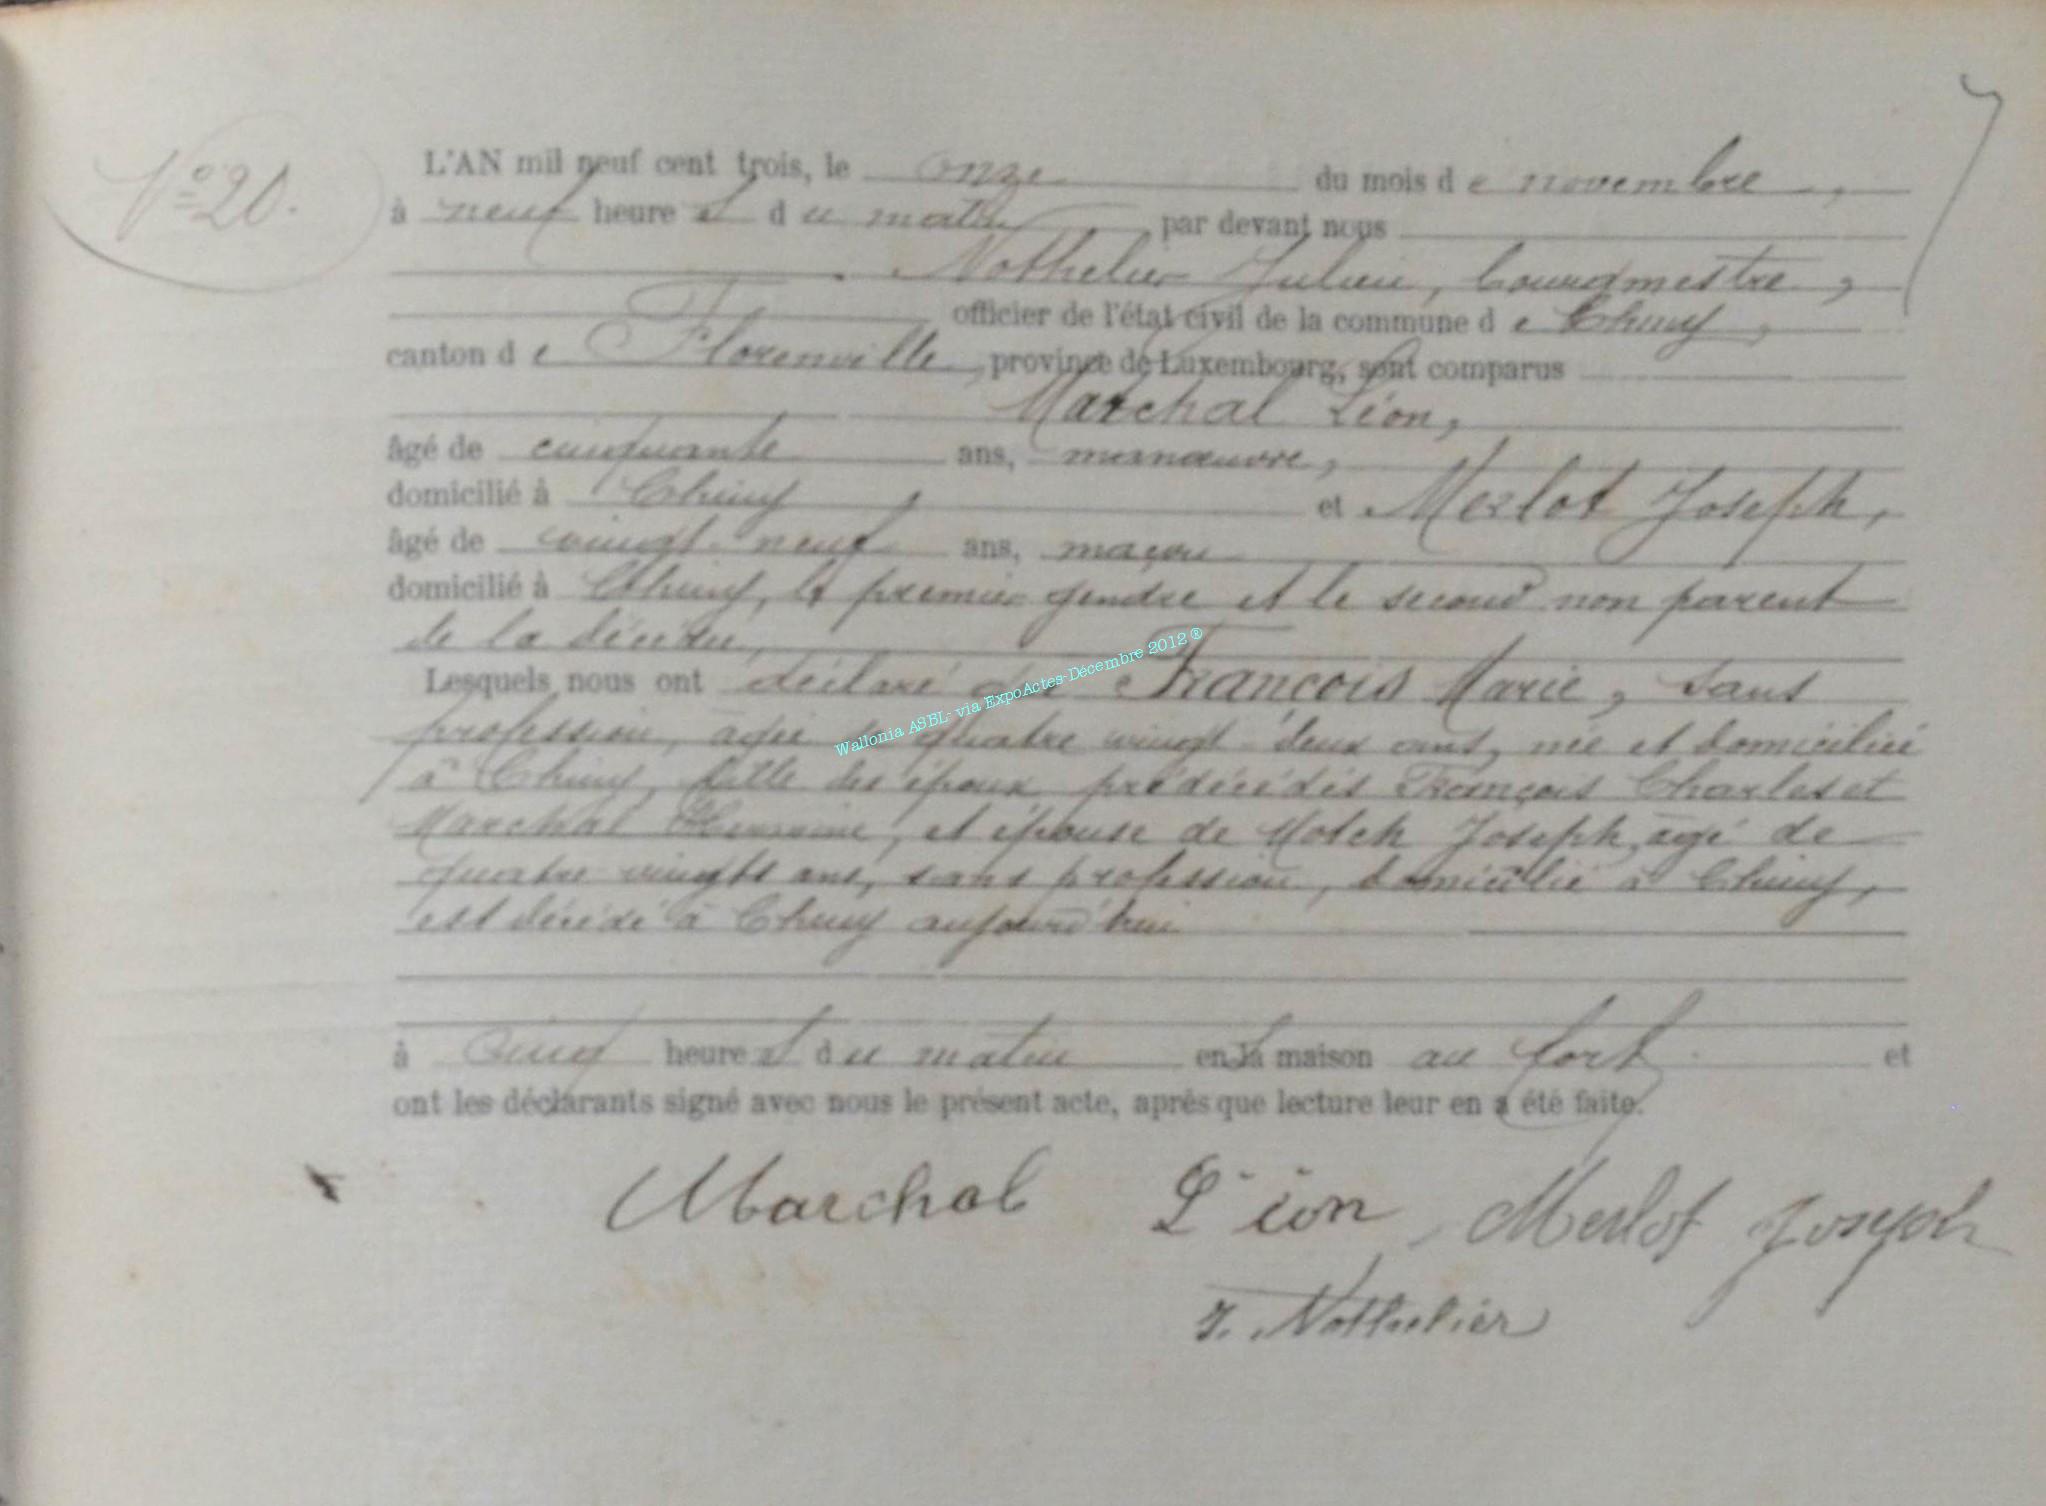 N° 20.
L'AN mil neuf cent trois, le onze du mois de novembre,
à neuf heures du matin par devant nous
Nothelier Julien, bourgmestre,
officier de l'état civil de la commune de Chiny,
canton de Florenville, province de Luxembourg, sont comparus
Marchal Léon,
âgé de cinquante ans, manœuvre,
domicilié à Chiny, et Merlot Joseph,
âgé de vingt-neuf ans, maçon
domicilié à Chiny, le premier gendre et le second non parent
de la décédée,
Lesquels nous ont déclaré que François Marie, sans
profession, âgée de quatre vingt deux ans, née et domiciliée
à Chiny, fille des époux prédécédés François Charles et
Marchal, et épouse de Motch Joseph, âgé de
quatre vingts ans, sans profession, domicilié à Chiny,
est décédé à Chiny aujourd'hui
à cinq heures du matin en sa maison au fort et
ont les déclarants signé avec nous le présent acte, après que lecture leur en a été faite.
Marchal Léon Merlot Joseph
J. Nothelier
Wallonia ASBL- via ExpoActes-Décembre 2012 ®